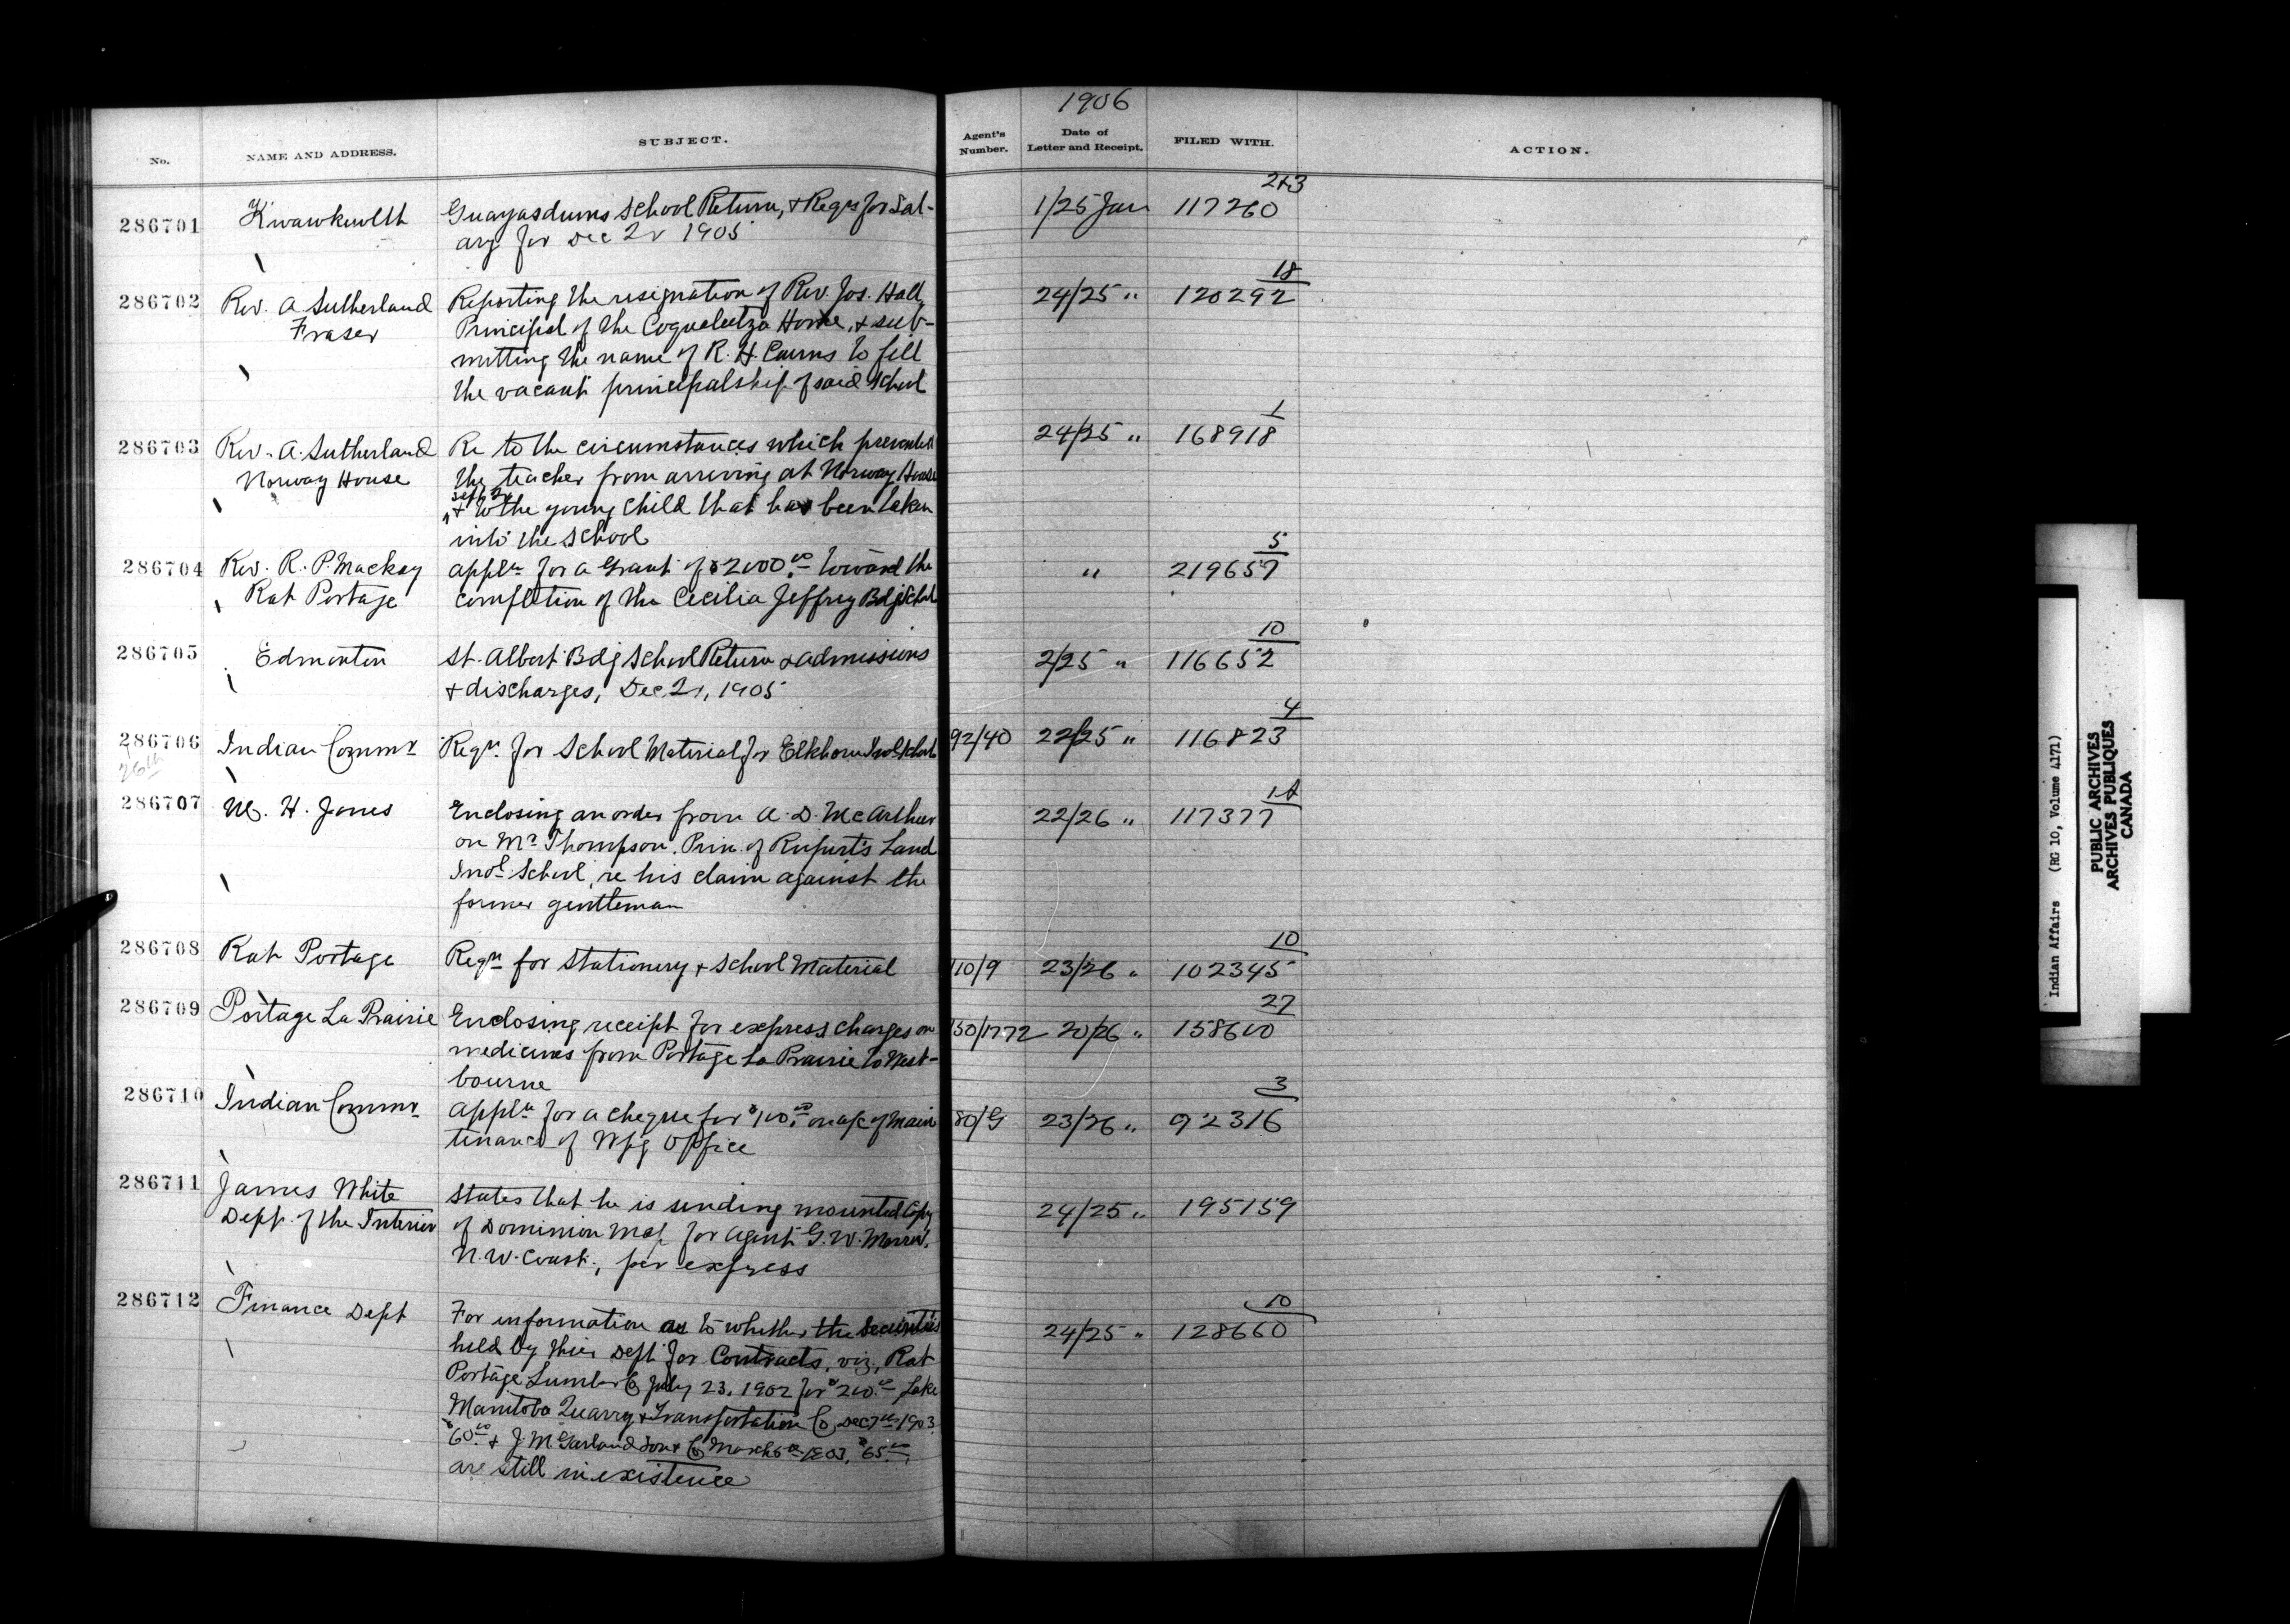 1906
No.
NAME AND ADDRESS.
SUBJECT.
Agent's Number.
Date of Letter and Receipt.
FILED WITH.
ACTION.
286701 Kwawkewlth Guayasdums School Return, & Reqn for Sal- 1/25 Jan 117260 2+3
ary for Dec 2r 1905
286702 Rev. A Sutherland Reporting the resignation of Rev. Jos. Hall, 24/25 " 120292 18
Fraser Principal of the Coqualeetza Home, & sub-
mitting the name of R. H. Cairns to fill
the vacant principalship of said School
286703 Rev. A. Sutherland Re to the circumstances which prevented 24/25 " 168918 1
Norway House the teacher from arriving at Norway House
& to the young child that has been taken
into the School
286704 Rev. R. P. Mackay Appln for a Grant of $2000.00 toward the " 219657 5
Rat Portage completion of the Cecilia Jeffrey Bdg School
286705 Edmonton St. Albert Bdg School Return & admissions 2/25 " 116652 10
& discharges, Dec 2r, 1905
286706 Indian Commr Reqn. for School Material for Elkhorn Indl School 92/40 22/25 " 116823 4
26th
286707 M. H. Jones Enclosing an order from A. D. McArthur 22/26 " 117377 1A
on Mr Thompson, Prin. of Rupert's Land
Indl School, re his claim against the
former gentleman
286708 Rat Portage Reqn for Stationery & School Material 110/9 23/26 " 102345 10
286709 Portage La Prairie Enclosing receipt for express charges on 150/1772 20/26 " 158600 27
medicines from Portage La Prairie to West-
bourne
286710 Indian Commr Appln for a cheque for $100.00 on a/c of main 80/G 23/26 " 92316 3
tenance of Wpg Office
286711 James White States that he is sending mounted Copy 24/25 " 195159
Dept. of the Interior of Dominion Map for Agent G. W. Morrow,
N. W. Coast, per express
286712 Finance Dept For information as to whether the Securities 24/25 " 128660 10
held by their Dept for Contracts, viz, Rat
Portage Lumber Co July 23, 1902 for $200.00 Lake
Manitoba Quarry & Transportation Co Dec 7th 1903
$60.00 & J. McFarland Son & Co March 6th 1903, $65.00,
are still in existence
Indian Affairs (RG 10, Volume 4171)
PUBLIC ARCHIVES
ARCHIVES PUBLIQUES
CANADA